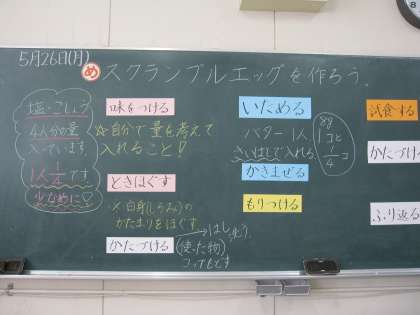 5月26日(月)
めスクランブルエッグを作ろう。
塩・こしょう
4人分の量
入っています
1人1/4です
少なめに♡
味をつける
☆自分で量を考えて
入れること!
ときほぐす
※白身(しろみ)の
かたまりをほぐす
かたづける
(使った物)
コップもです
いためる
バター1人
8g
1コと
1/4コ
さいばしで入れる
かきまぜる
もりつける
試食する
かたづけ
ふり返る